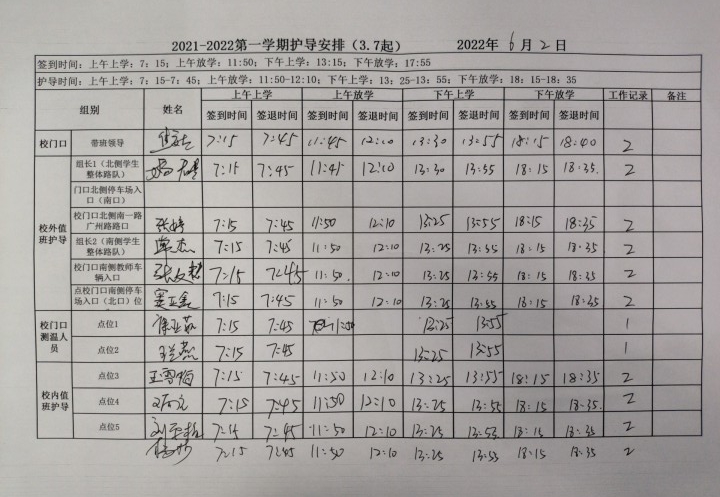 2021-2022第一学期护导安排（3.7起） 2022年 6月 2日
签到时间：上午上学：7：15；上午放学：11:50；下午上学：13:15；下午放学：17:55
护导时间：上午上学：7：15-7：45；上午放学：11:50-12:10；下午上学：13：25-13：55；下午放学：18：15-18：35
组别 姓名 上午上学 上午放学 下午上学 下午放学 工作记录 备注
签到时间 签退时间 签到时间 签退时间 签到时间 签退时间 签到时间 签退时间
校门口 带班领导 7:15 7:45 11:45 12:10 13:30 13:55 18:15 18:40 2
校外值班护导
组长1（北侧学生整体路队） 7:15 7:45 11:45 12:10 13:30 13:55 18:15 18:35. 2
门口北侧停车场入口（南口）
校门口北侧南一路广州路路口 张婷 7:15 7:45 11:50 12:10 13:25 13:55 18:15 18:35 2
组长2（南侧学生整体路队） 7:15 7:45 11:50 12:10 13:25 13:55 18:15 18:35 2
校门口南侧教师车辆入口 7:15 7:45 11:50. 12:10 13:25 13:55 18:15 18:35 2
点校门口南侧停车场入口（北口）位 7:15 7:45 11:50 12:10 13:25 13:55 18:15 18:35 2
校门口测温人员
点位1 7:15 7:45 11:50 13:25 13:55 1
点位2 7:15 7:45 13:25 13:55 1
校内值班护导
点位3 7:15 7:45 11:50 12:10 13:25 13:55 18:15 18:35 2
点位4 7:15 7:45 11:50 12:10 13:25 13:55 18:15 18:35. 2
点位5 7:15 7:45 11:50 12:10 13:25 13:55 18:15 18:35 2
7:15 7:45 11:50 12:10 13:25 13:55 18:15 18:35 2